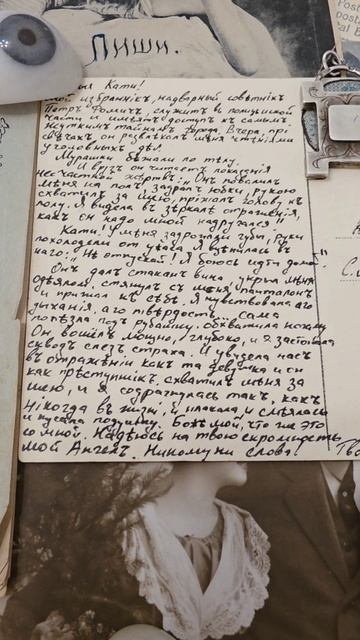 Пиши.
Кати!
избранникъ, надворный совѣтникъ
служитъ в полицейской
части и имѣетъ доступъ к самымъ
жуткимъ тайнамъ города. Вчера, при
свѣчах он развлекъ меня чтенiями
уголовныхъ дѣл.
Мурашки бѣжали по тѣлу.
И вдруг он читаетъ показанiя
несчастной жертвы: "Он повалил
мѣня на полъ, задрал юбки, рукою
схватилъ за шею, прижалъ голову къ
полу. Я видела в зѣркалѣ отраженiя,
какъ он надо мной надругался!"
Кати! У меня задрожали губы, руки
похолодели от ужаса. Я вцѣпилась в
него: "Не отпускай! Я боюсь идти домой"
Онъ далъ стаканъ вина, укрылъ меня
одѣяломъ, стянулъ съ меня панталоны
и прижал къ себѣ. Я чувствовала его
дыханiя, его твёрдость... сама
полезла под рубашку, обхватила ногами
Он вошёлъ мощно, глубоко, и я застонала
сквозь слёзъ страха. И увидела насъ
в отраженiи какъ та девушка и он
как прѣступникъ, схватилъ мѣня за
шею, и я содрагнулась такъ, какъ
никогда в жизни, и плакала, и смѣялась
и кусала подушку. Боже мой, что же это
со мной. Надѣюсь на твою скромность
мой Ангелъ. Никому ни слова!